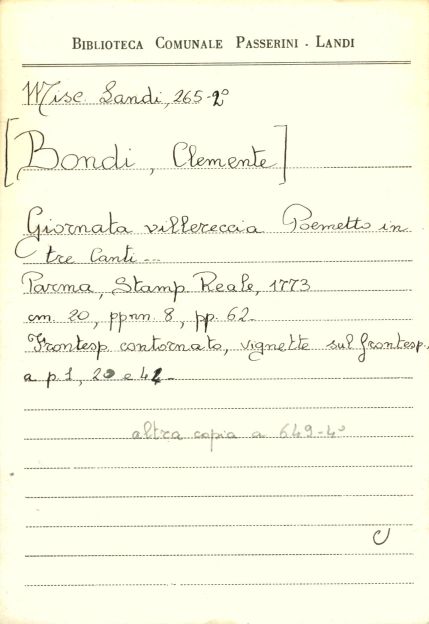 BIBLIOTECA COMUNALE PASSERINI - LANDI
Misc Landi, 265-2°
[Bondi, Clemente]
Giornata villereccia Poemetto in
tre Canti --
Parma, Stamp Reale, 1773
cm. 20, ppnn. 8, pp. 62-
Frontesp contornato, vignette sul frontesp.
a p. 1, 20 e 42-
altra copia a 649-4°